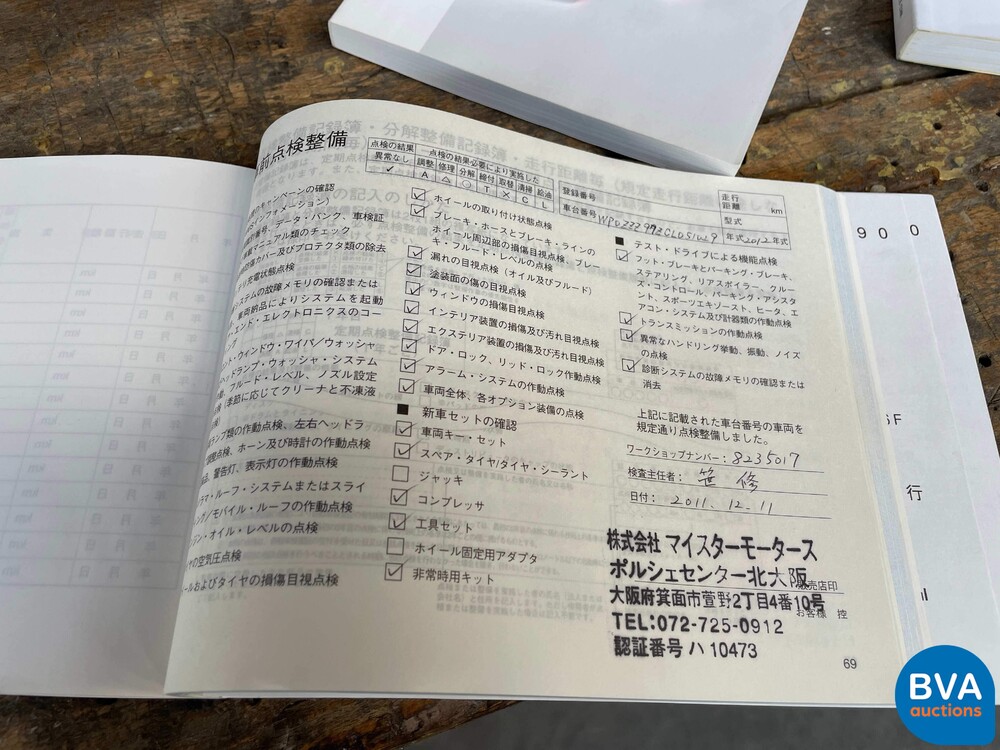 前点検整備
点検の結果
点検の結果必要により実施した
異常なし 調整 修理 分解 締付 取替 清掃 給油
✓ A △ ○ T × C L
登録番号
走行距離 km
車台番号
型式
年式 2012 年式
キャンペーンの確認
インフォメーション)
番号、データ・バンク、車検証
マニュアル類のチェック
カバー及びプロテクタ類の除去
充電状態点検
システムの故障メモリの確認または
車両納品によりシステムを起動
エンド・エレクトロニクスのコー
ト・ウインドウ・ワイパ/ウォッシャ
ヘッドランプ・ウォッシャ・システム
フルード・レベル、ノズル設定
(季節に応じてクリーナと不凍液
ランプ類の作動点検、左右ヘッドラ
点検、ホーン及び時計の作動点検
警告灯、表示灯の作動点検
ラマ・ルーフ・システムまたはスライ
ング/モバイル・ルーフの作動点検
ジン・オイル・レベルの点検
の空気圧点検
ールおよびタイヤの損傷目視点検
ホイールの取り付け状態点検
ブレーキ・ホースとブレーキ・ラインの
ホイール周辺部の損傷目視点検、ブレー
キ・フルード・レベルの点検
漏れの目視点検(オイル及びフルード)
塗装面の傷の目視点検
ウィンドウの損傷目視点検
インテリア装置の損傷及び汚れ目視点検
エクステリア装置の損傷及び汚れ目視点検
ドア・ロック、リッド・ロック作動点検
アラーム・システムの作動点検
車両全体、各オプション装備の点検
■ 新車セットの確認
車両キー・セット
スペア・タイヤ/タイヤ・シーラント
ジャッキ
コンプレッサ
工具セット
ホイール固定用アダプタ
非常時用キット
■ テスト・ドライブによる機能点検
フット・ブレーキとパーキング・ブレーキ、
ステアリング、リアスポイラー、クルー
ズ・コントロール、パーキング・アシスタ
ント、スポーツエキゾースト、ヒータ、エ
アコン・システム及び計器類の作動点検
トランスミッションの作動点検
異常なハンドリング挙動、振動、ノイズ
の点検
診断システムの故障メモリの確認または
消去
上記に記載された車台番号の車両を
規定通り点検整備しました。
ワークショップナンバー: 8235017
検査主任者: 笹 修
日付: 2011. 12. 11
株式会社 マイスターモータース
ポルシェセンター北大阪
販売店印
大阪府箕面市萱野2丁目4番10号
お客様 控
TEL:072-725-0912
認証番号 ハ 10473
69
900
SF
行
BVA
auctions